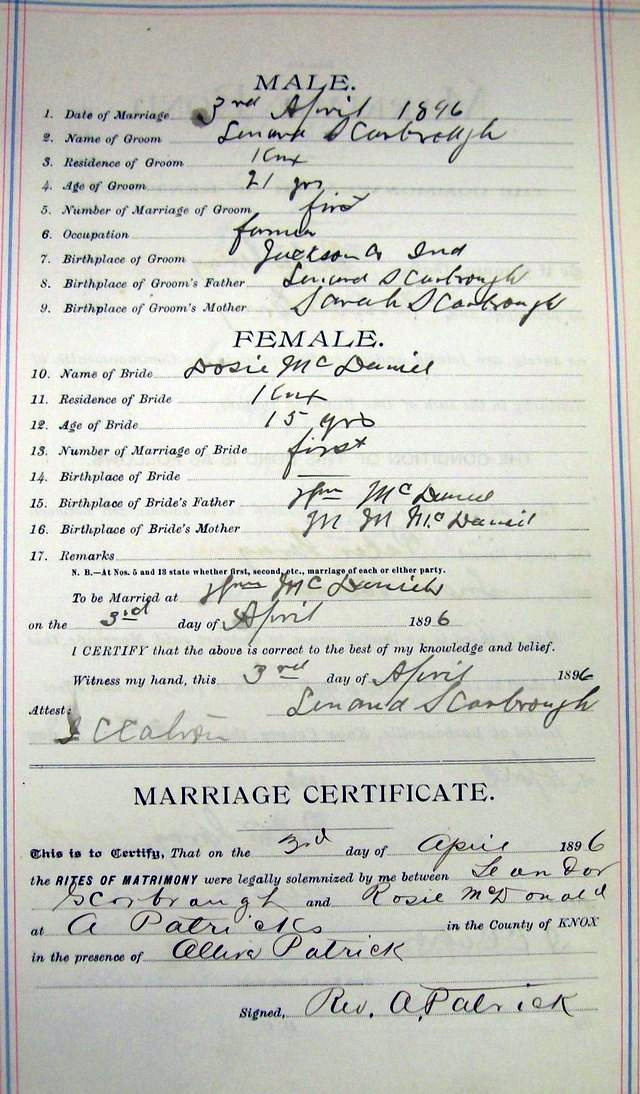 MALE.
1. Date of Marriage 3rd April 1896
2. Name of Groom Lenard Scarbrough
3. Residence of Groom Knx
4. Age of Groom 21 yrs
5. Number of Marriage of Groom first
6. Occupation farmer
7. Birthplace of Groom Jackson Co Ind
8. Birthplace of Groom's Father Lenard Scarbrough
9. Birthplace of Groom's Mother Sarah Scarbrough
FEMALE.
10. Name of Bride Dosie McDaniel
11. Residence of Bride Knx
12. Age of Bride 15 yrs
13. Number of Marriage of Bride first
14. Birthplace of Bride
15. Birthplace of Bride's Father Wm McDaniel
16. Birthplace of Bride's Mother M M McDaniel
17. Remarks
N. B.—At Nos. 5 and 13 state whether first, second, etc., marriage of each or either party.
To be Married at Wm McDaniels
on the 3rd day of April 1896
I CERTIFY that the above is correct to the best of my knowledge and belief.
Witness my hand, this 3rd day of April 1896
Lenard Scarbrough
Attest:
MARRIAGE CERTIFICATE.
This is to Certify, That on the 3rd day of April 1896
the RITES OF MATRIMONY were legally solemnized by me between Leandor
Scorbraugh and Rosie McDonald
at A Patricks in the County of KNOX
in the presence of Patrick
Signed, Rev. A. Patrick